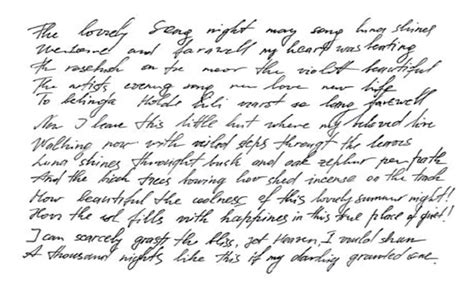 The lovely Song night may song luna shines
Welcome and farewell my heart was beating
The rosebush on the moor the violet beautiful
The artists evening song new love new life
To belinda Holde Lili warst so long farewell
Now I leave this little hut where my beloved live
Walking now with veiled steps through the leaves
Luna shines throught bush and oak zephur per path
And the birch trees bowing low shed incense on the track
How beautiful the coolness of this lovely summer night!
How the soul fills with happiness in this true place of quiet!
I can scarcely grasp the bliss, yet Heaven, I would shun
A thousand nights like this if my darling granted one.